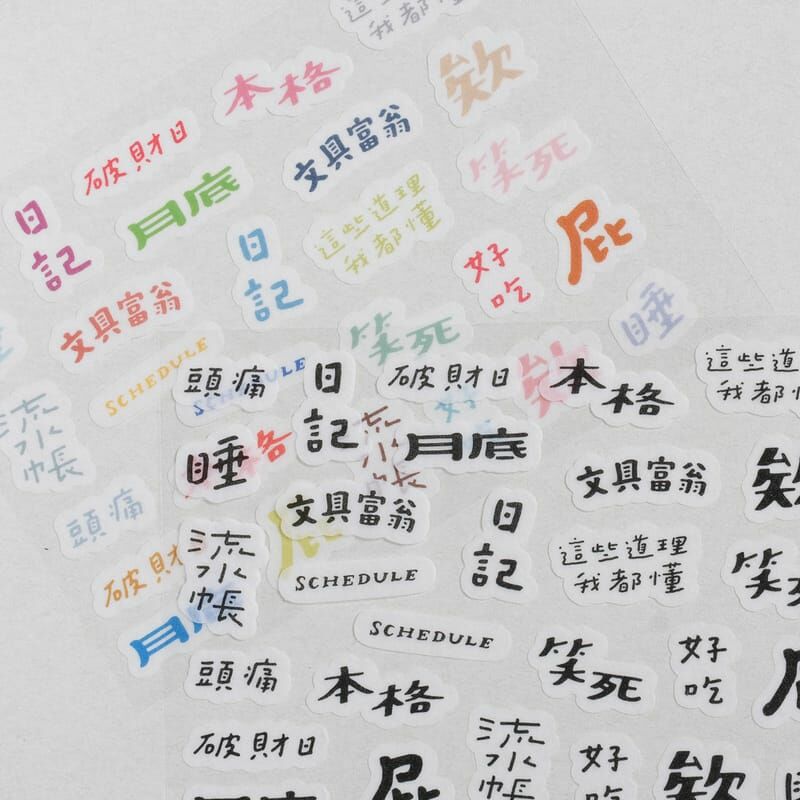 這些道理
我都懂
本格
欸
破財日
文具富翁
笑死
月底
日
記
這些道理
我都懂
屁
日
記
好
吃
文具富翁
睡
笑死
SCHEDULE
流
水
帳
頭痛
破財
月底
頭痛
日
記
破財日
本格
這些道
我都懂
睡
月底
文具富翁
欸
文具富翁
日
記
流
水
帳
SCHEDULE
這些道理
我都懂
笑
SCHEDULE
頭痛
本格
笑死
好
吃
破財日
流
水
帳
屁
好
吃
欸